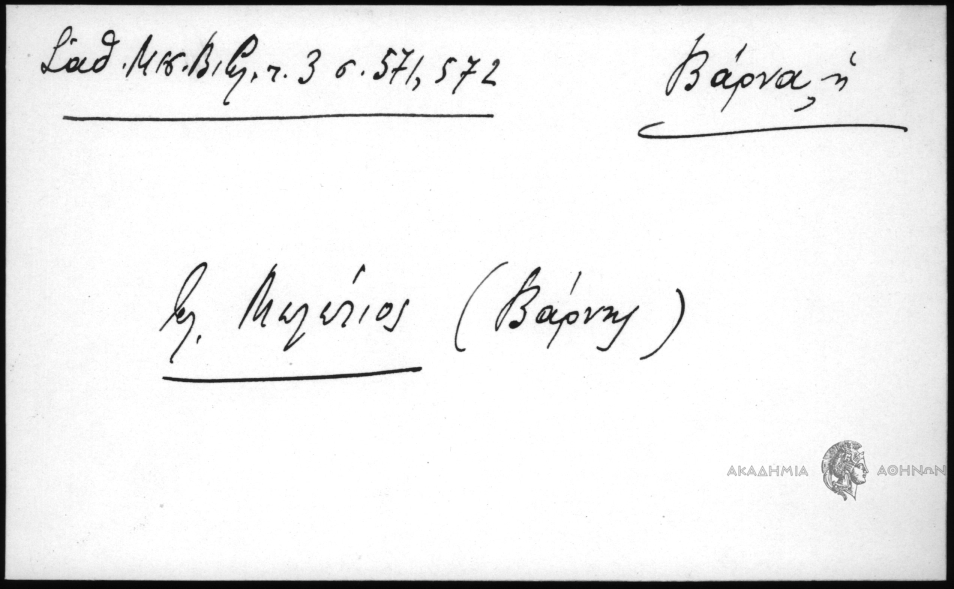 Σαθ. Μεσ. Βιβ. τ. 3 σ. 571, 572
Βάρνα, ἡ
βλ. Μελέτιος (Βάρνης)
ΑΚΑΔΗΜΙΑ ΑΘΗΝΩΝ